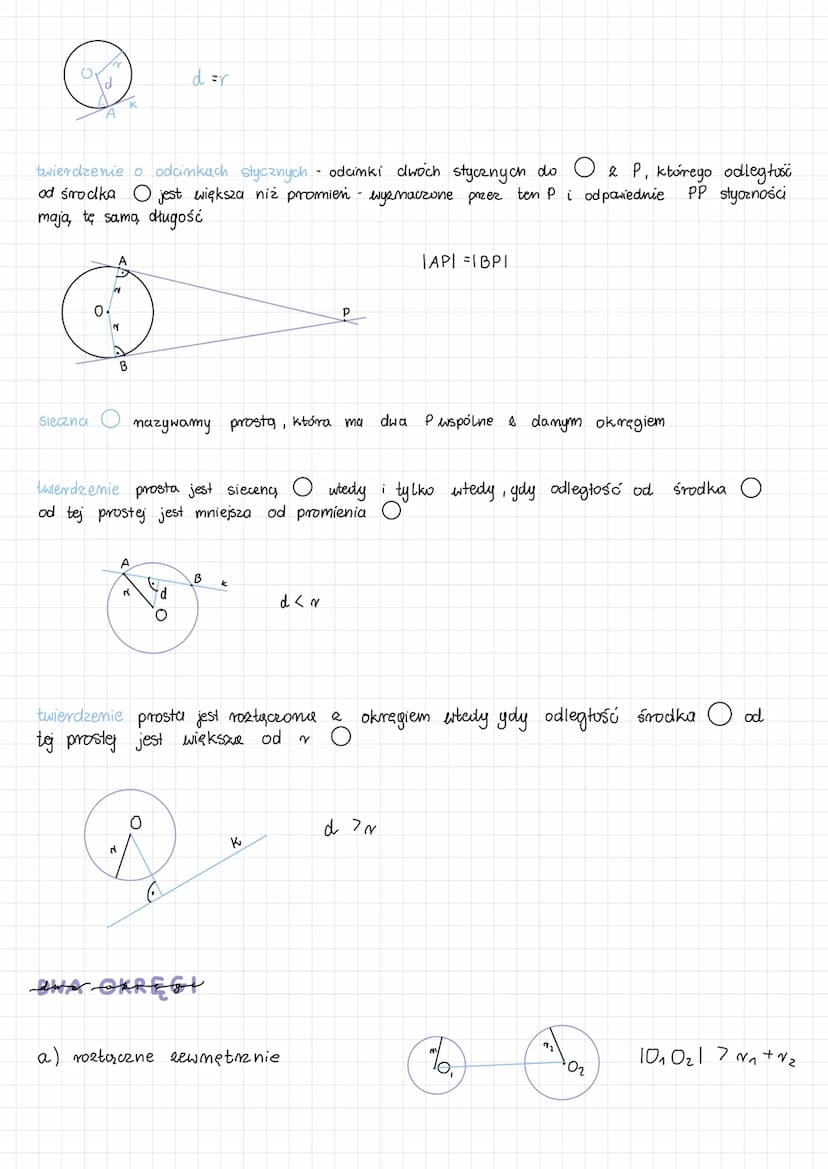 O r
d
A K
d = r
twierdzenie o odcinkach stycznych - odcinki dwóch stycznych do ◯ z P, którego odległość
od środka ◯ jest większa niż promień - wyznaczone przez ten P i odpowiednie PP styczności
mają tę samą długość
|AP| = |BP|
A
r
O
r
P
B
sieczna ◯ nazywamy prostą, która ma dwa P wspólne z danym okręgiem
twierdzenie prosta jest sieczną ◯ wtedy i tylko wtedy, gdy odległość od środka ◯
od tej prostej jest mniejsza od promienia ◯
A
B k
r d
O
d < r
twierdzenie prosta jest rozłączona z okręgiem wtedy gdy odległość środka ◯ od
tej prostej jest większa od r ◯
O
r
K
d > r
DWA OKRĘGI
a) rozłączne zewnętrznie
r₁ O₁
r₂ O₂
|O₁ O₂| > r₁ + r₂